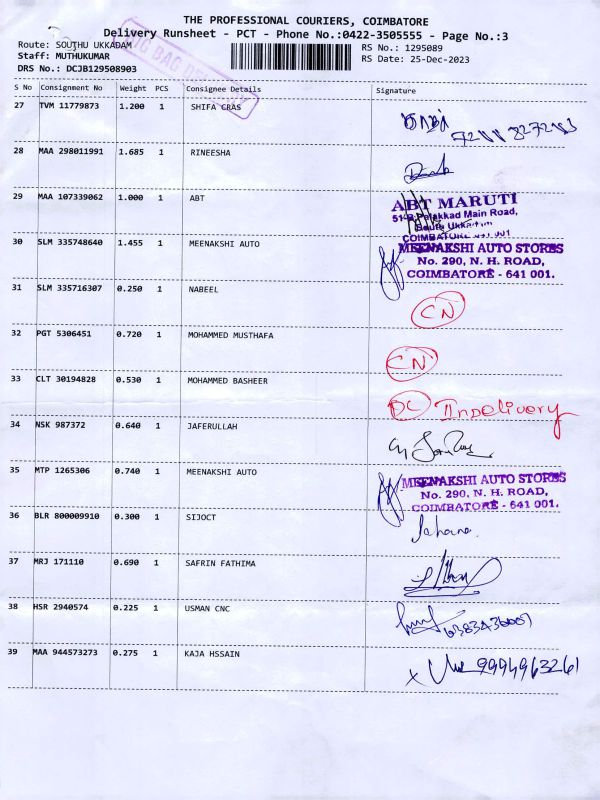 THE PROFESSIONAL COURIERS, COIMBATORE
Delivery Runsheet - PCT - Phone No.:0422-3505555 - Page No.:3
Route: SOUTHU UKKADAM
RS No.: 1295089
Staff: MUTHUKUMAR
RS Date: 25-Dec-2023
DRS No.: DCJB129508903
S No Consignment No Weight PCS Consignee Details Signature
27 TVM 11779873 1.200 1 SHIFA CRAS
28 MAA 298011991 1.685 1 RINEESHA
29 MAA 107339062 1.000 1 ABT
ABT MARUTI
Palakkad Main Road,
South Ukkadam
COIMBATORE 641 001
30 SLM 335748640 1.455 1 MEENAKSHI AUTO
MEENAKSHI AUTO STORES
No. 290, N. H. ROAD,
COIMBATORE - 641 001.
31 SLM 335716307 0.250 1 NABEEL
CN
32 PGT 5306451 0.720 1 MOHAMMED MUSTHAFA
CN
33 CLT 30194828 0.530 1 MOHAMMED BASHEER
DC Indelivery
34 NSK 987372 0.640 1 JAFERULLAH
35 MTP 1265306 0.740 1 MEENAKSHI AUTO
MEENAKSHI AUTO STORES
No. 290, N. H. ROAD,
COIMBATORE - 641 001.
36 BLR 800009910 0.300 1 SIJOCT
Sahana
37 MRJ 171110 0.690 1 SAFRIN FATHIMA
38 HSR 2940574 0.225 1 USMAN CNC
39 MAA 944573273 0.275 1 KAJA HSSAIN
9994963261